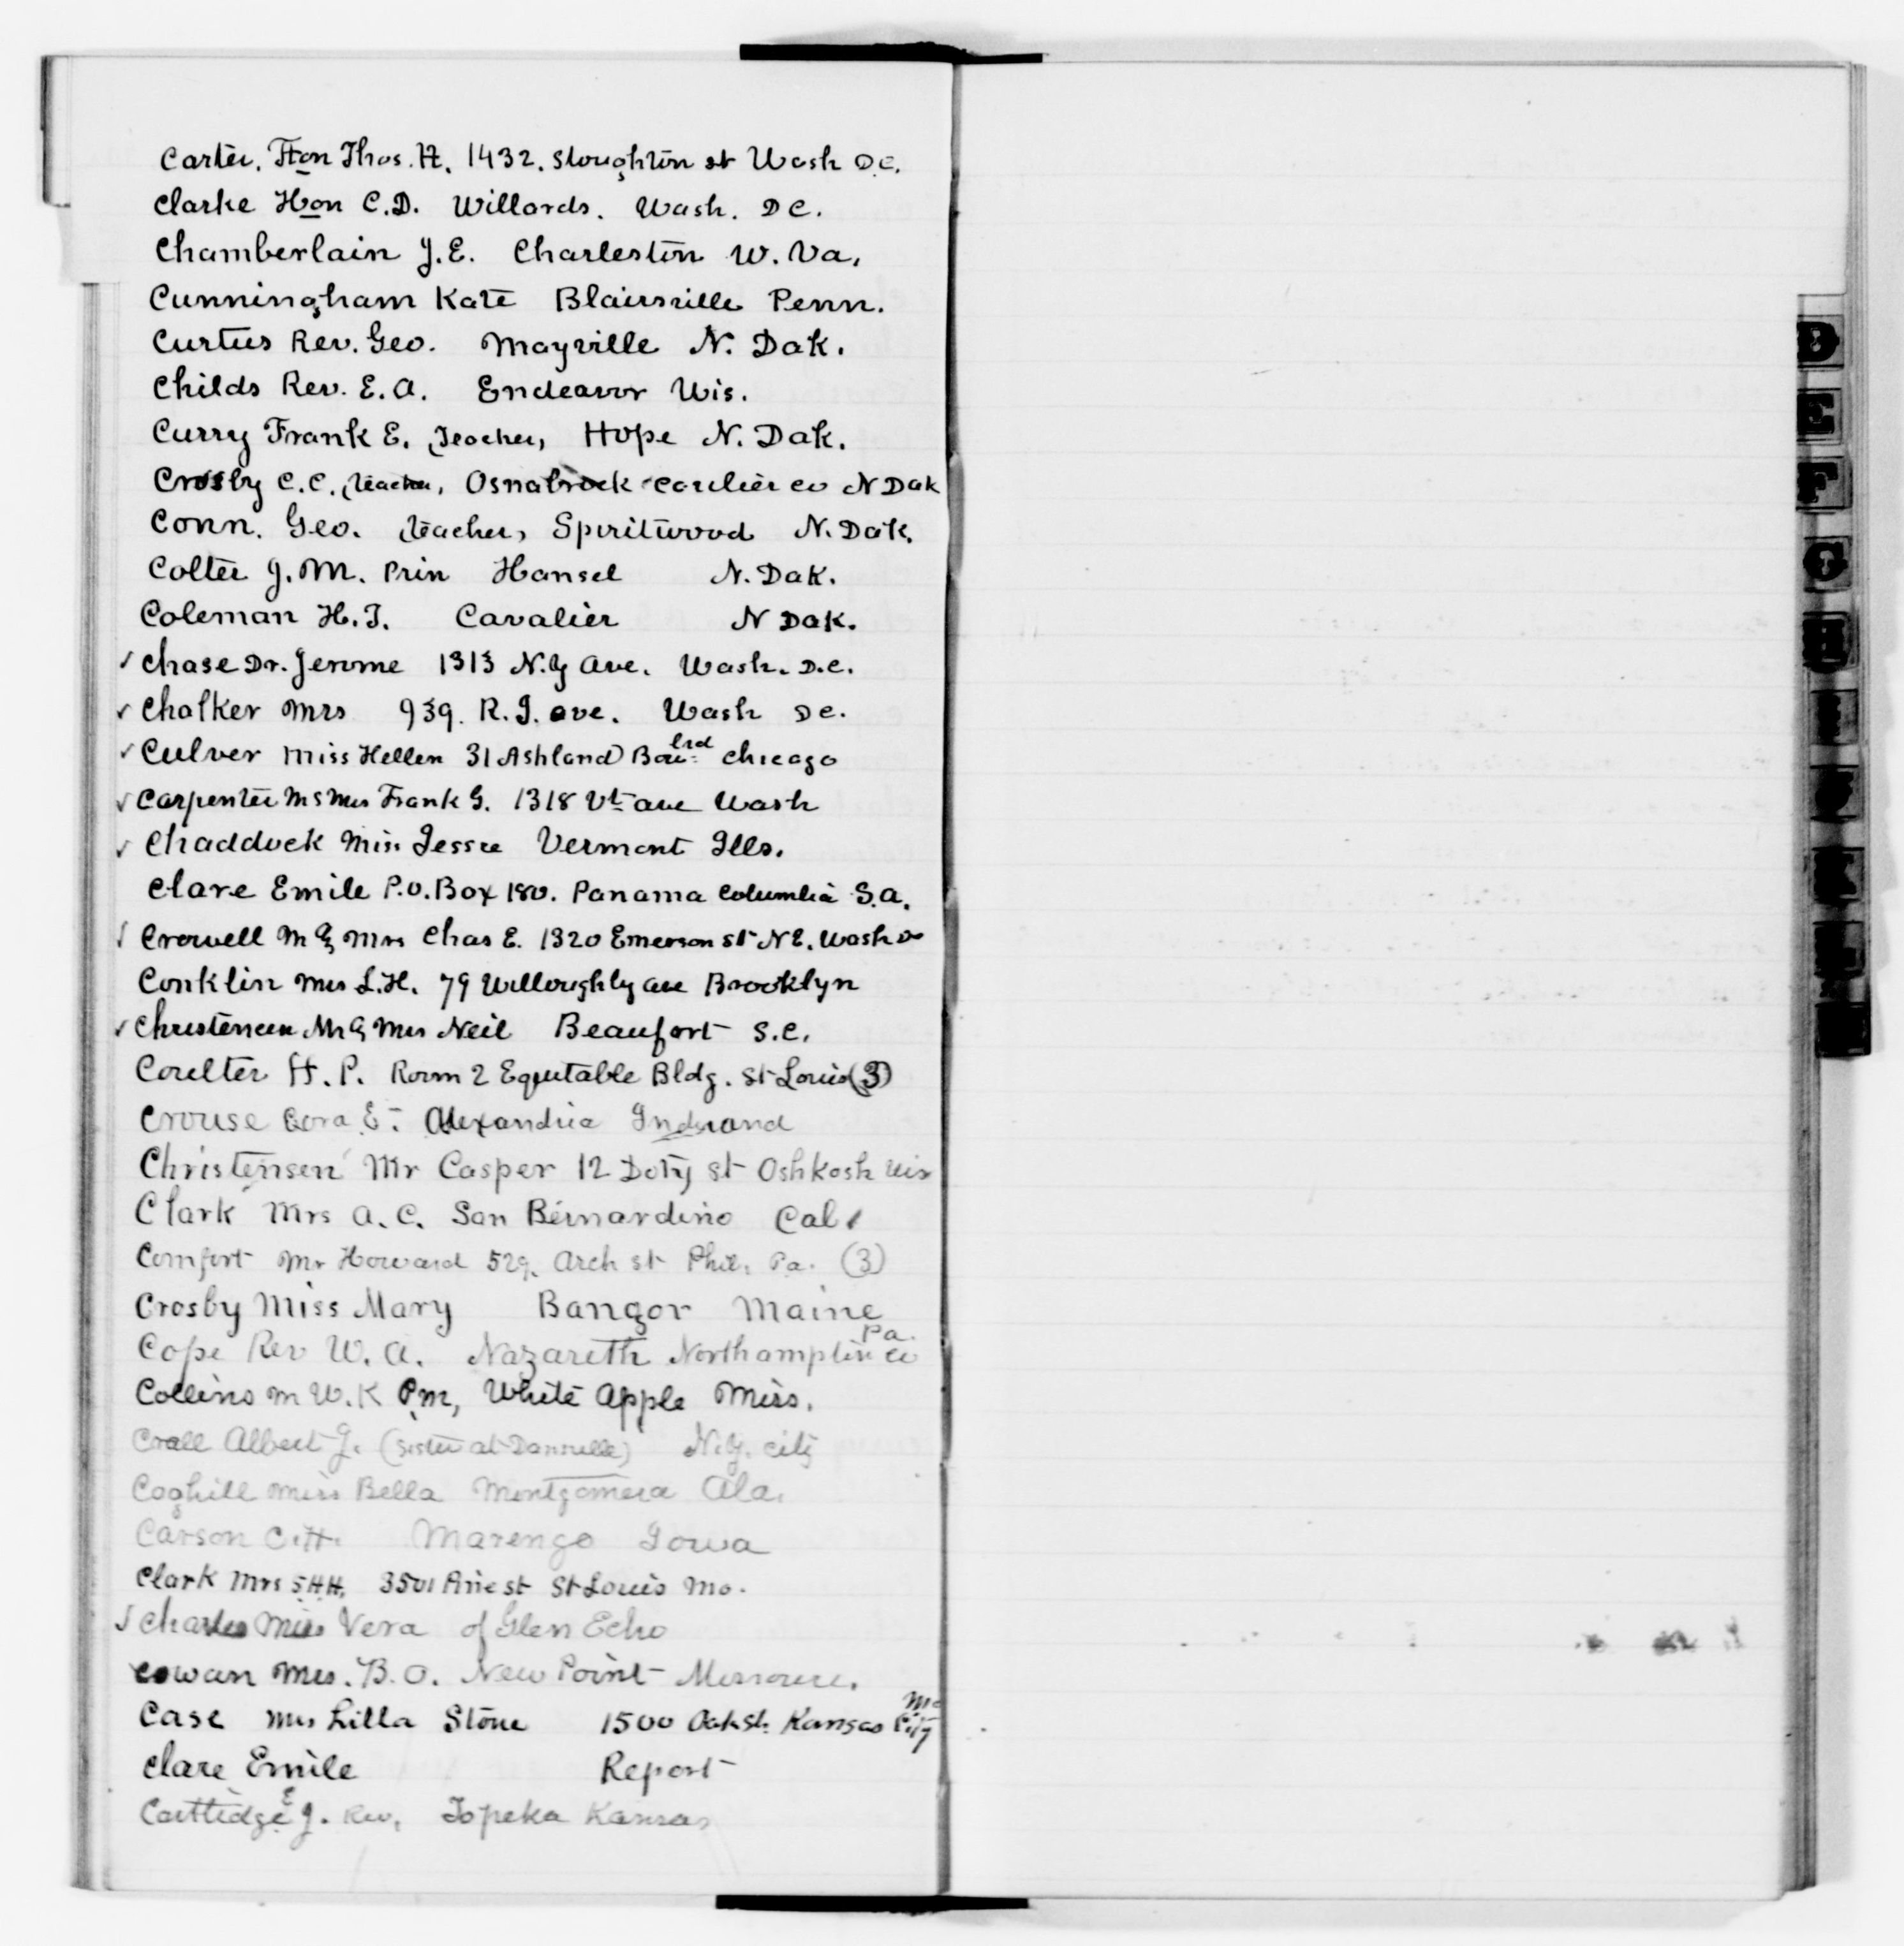 Carter, Hon Thos. H. 1432. Stoughton st Wash D.C.
Clarke Hon C.D. Willards. Wash. DC.
Chamberlain J.E. Charleston W. Va.
Cunningham Kate Blairsville Penn.
Curtis Rev. Geo. Mayville N. Dak.
Childs Rev. E.A. Endeavor Wis.
Curry Frank E. Teacher, Hope N. Dak.
Crosby C.C. teacher, Osnabrock Cavilier co N Dak
Conn. Geo. teacher, Spiritwood N. Dak.
Colter J.M. Prin Hansel N. Dak.
Coleman H.T. Cavalier N Dak.
✓ Chase Dr. Jerome 1313 N.Y Ave. Wash. D.C.
✓ Chalker Mrs 939. R.I. ave. Wash DC.
✓ Culver Miss Hellen 31 Ashland Boulrd Chicago
✓ Carpenter M & Mrs Frank G. 1318 Vt ave Wash
✓ Chaddock Miss Jessie Vermont Ills.
Clare Emile P.O. Box 180. Panama Columbia S.A.
✓ Crowell M & Mrs Chas E. 1320 Emerson st N E. Wash DC
Conklin Mrs L.H. 79 Willoughby ave Brooklyn
✓ Christensen Mr & Mrs Neil Beaufort S.C.
Coulter H. P. Room 2 Equitable Bldg. St Louis (3)
Crouse Cora E. Alexandria Indiana
Christensen Mr Casper 12 Doty st Oshkosh Wis
Clark Mrs A. C. San Bernardino Cal
Comfort Mr Howard 529. Arch st Phil. Pa. (3)
Crosby Miss Mary Bangor Maine
Cope Rev W. A. Nazareth Northampton co Pa.
Collins M W. K P.M, White Apple Miss.
Albert J. (Sister at Dansville) N.Y. City
Coghill Miss Bella Ala.
Carson C.H. Marengo Iowa
Clark Mrs S.H.H. 3501 Pine st St Louis Mo.
✓ Charles Miss Vera of Glen Echo
Cowan Mrs. B.O. New Point Missouri.
Case Mrs Lilla Stone 1500 Oak St. Kansas City Mo
Clare Emile Report
E J. Rev. Topeka Kansas
D
E
F
G
H